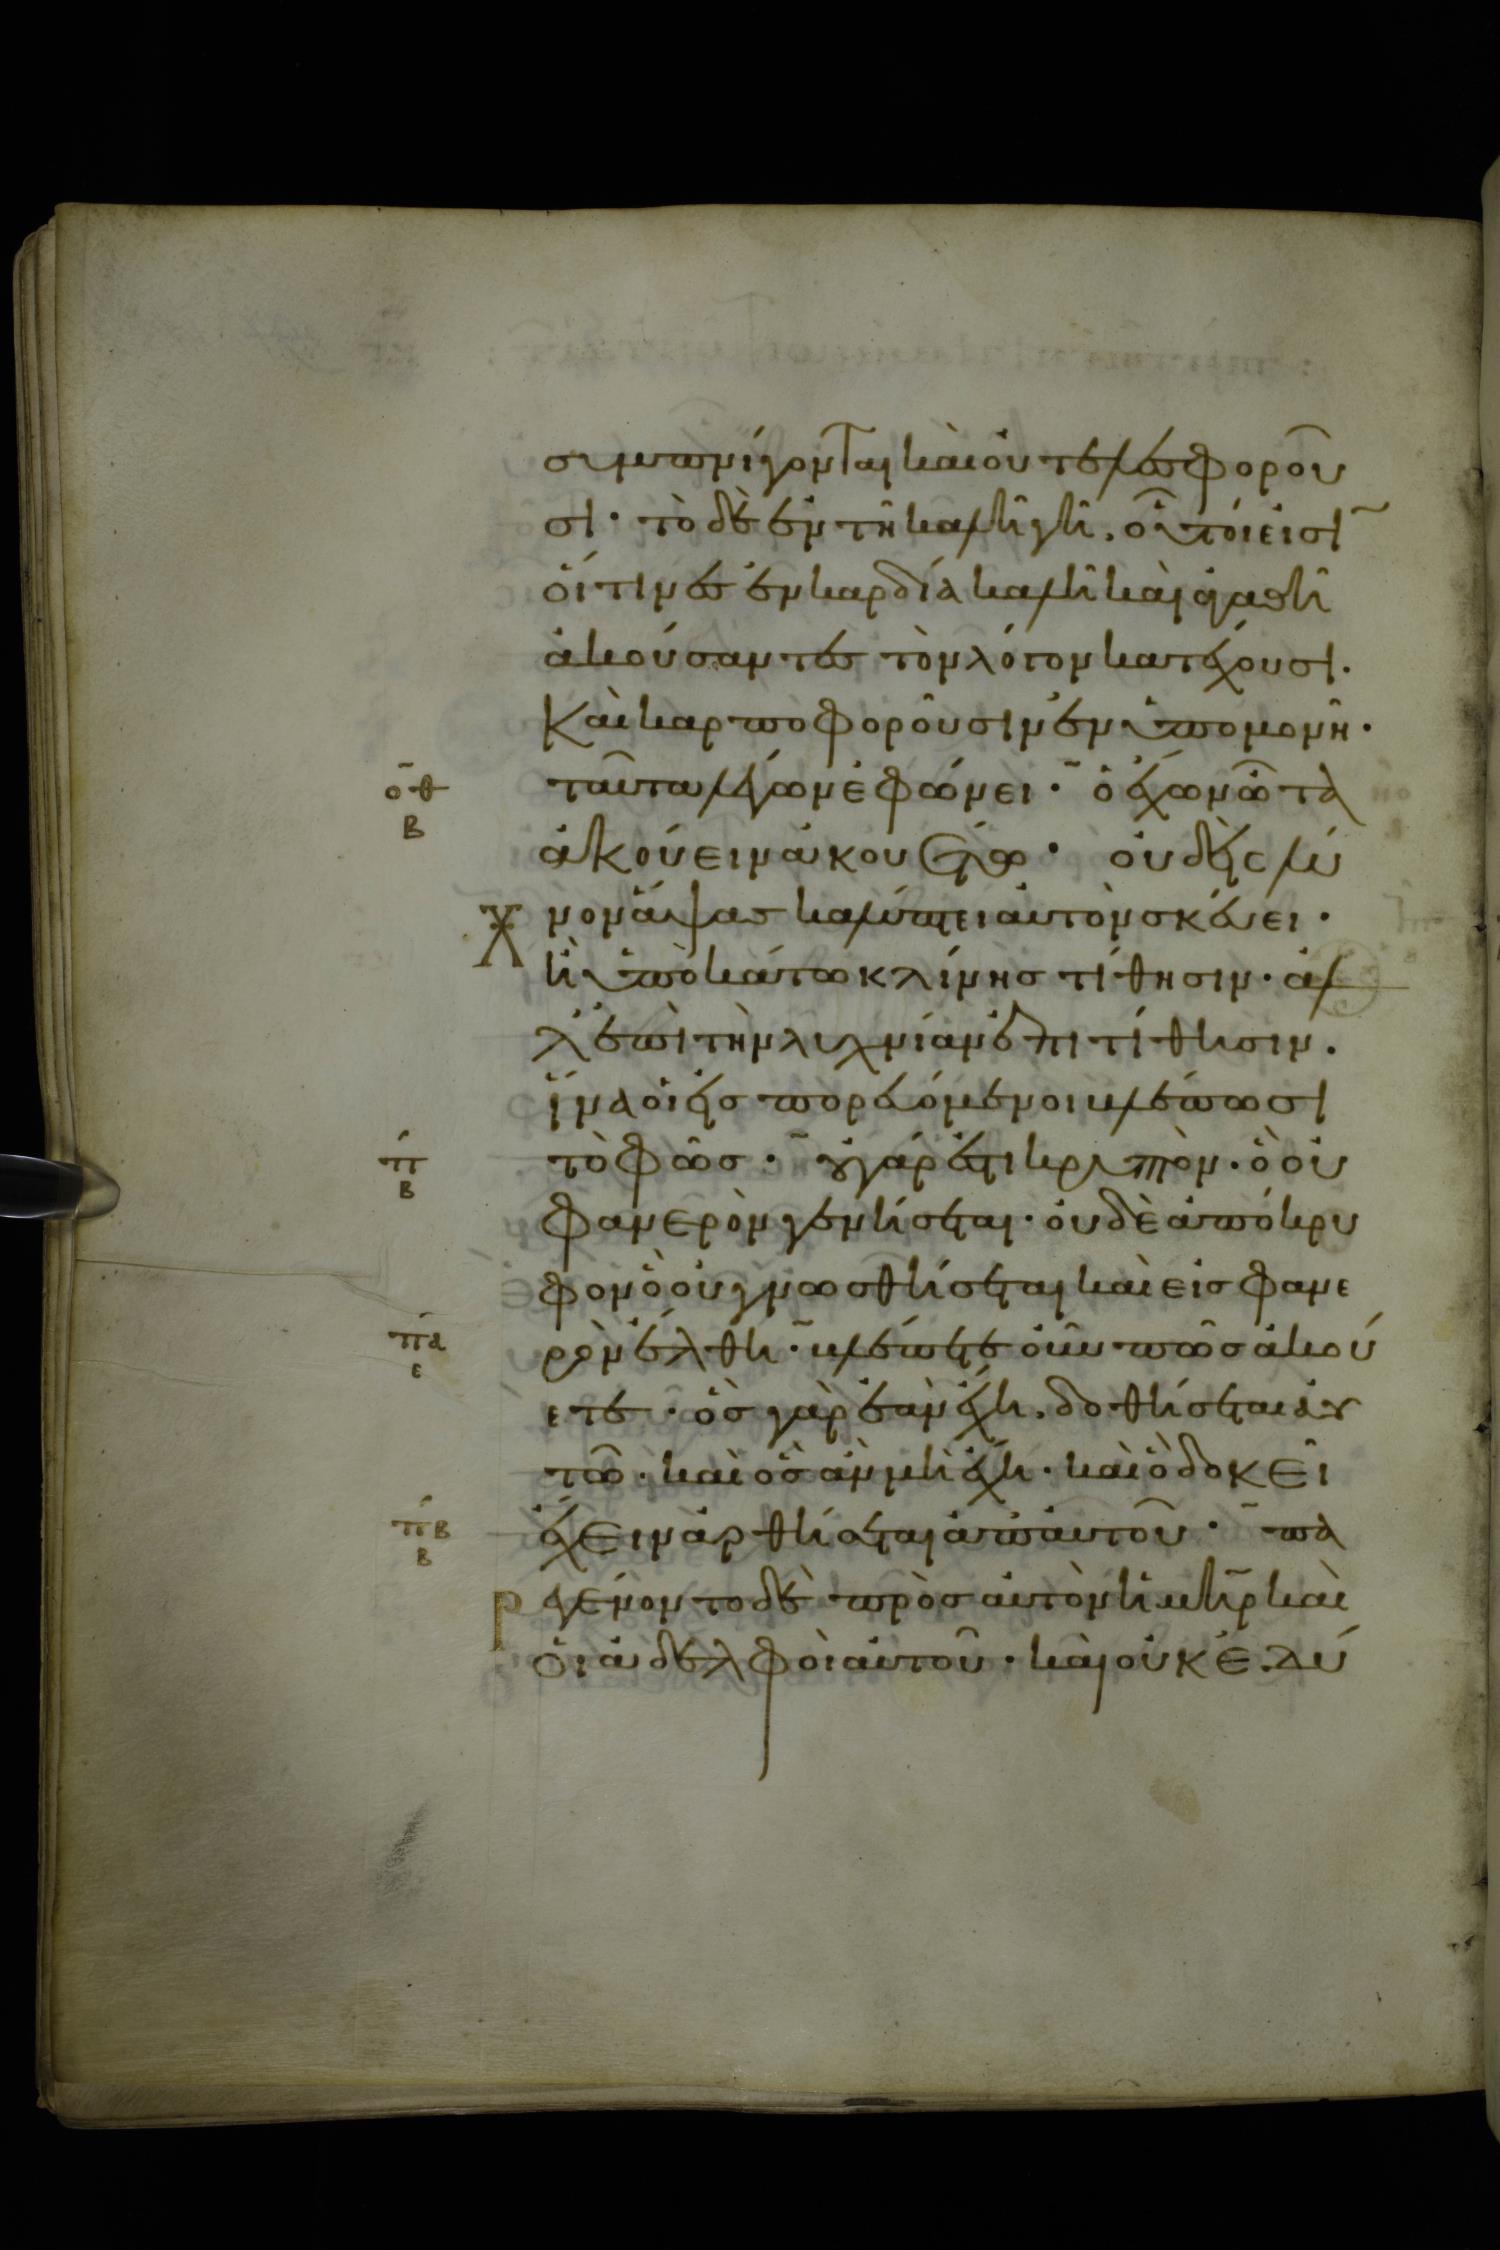 συμπνίγονται καὶ οὐ τελεσφοροῦ
σι· τὸ δὲ ἐν τῆ καλῆ γῆ. οὗτοί εἰσῖ
οἵτινες ἐν καρδία καλῆ καὶ ἀγαθῆ
ἀκούσαντες τὸν λόγον κατέχουσι.
Καὶ καρποφοροῦσιν ἐν ὑπομονῆ·
οθ
β
ταῦτα λέγων ἐφώνει· ὁ ἔχων ὦτα
ἀκούειν ἀκουέτω· οὐδεὶς λύ
Χνον ἅψας καλύπτει αὐτὸν σκεύει·
ἢ ὑποκάτω κλίνης τίθησιν· ἀλ
λ' ἐπὶ τὴν λυχνίαν ἐπιτίθησιν.
ἵνα οἱ εἰσπορευόμενοι βλέπωσι
π
β
τὸ φῶς· οὐ γάρ ἐστι κρυπτὸν· ὃ οὐ
φανερὸν γενήσεται· οὐδὲ ἀπόκρυ
φον ὃ οὐ γνωσθήσεται καὶ εἰς φανε
πα
ε
ρὸν ἔλθη· βλέπετε οὖν πῶς ἀκού
ετε· ὃς γὰρ ἐὰν ἔχη. δοθήσεται αυ
τῶ· καὶ ὃς ἂν μὴ ἔχη· καὶ ὃ δοκεῖ
πβ
β
ἔχειν ἀρθήσεται ἀπ' αὐτοῦ· πα
Ρεγένοντο δὲ πρὸς αὐτὸν ἡ μηρ καὶ
οἱ ἀδελφοὶ αὐτοῦ· καὶ οὐκ ἐδύ